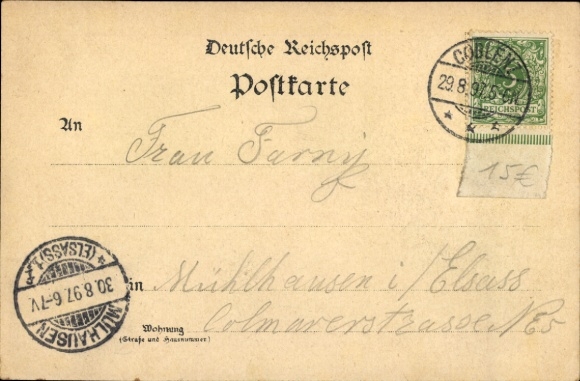 Deutsche Reichspost
Postkarte
COBLENZ
29.8.97.5-6N.
5
REICHSPOST
15€
An
Frau Farny
in Mühlhausen i/Elsass
Wohnung
(Straße und Hausnummer)
Colmarerstrasse No 5
(ELSASS) 1
30.8.97.6-7V.
MÜLHAUSEN